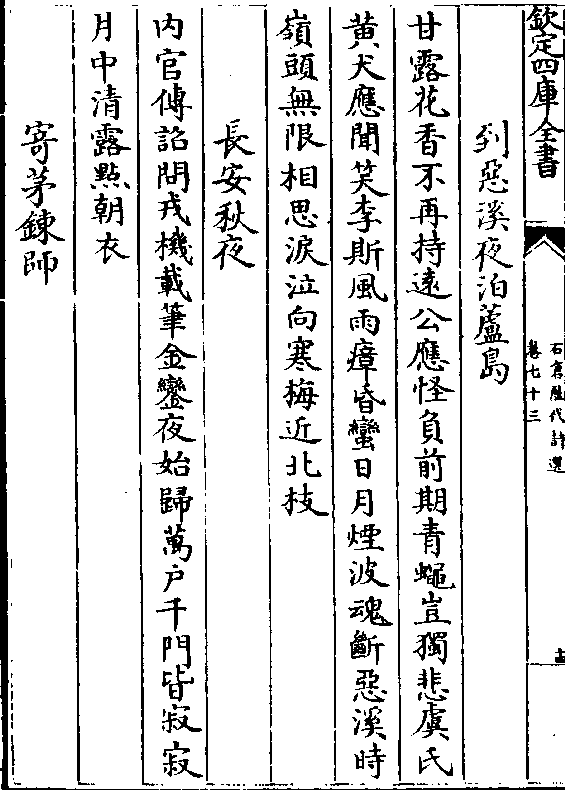 欽定四庫全書
石倉歷代詩選
卷七十三
十二
到惡溪夜泊蘆島
甘露花香不再持遠公應怪負前期青蠅豈獨悲虞氏
黄犬應聞笑李斯風雨瘴昏蠻日月煙波魂斷惡溪時
嶺頭無限相思淚泣向寒梅近北枝
長安秋夜
内官傳詔問戎機載筆金鑾夜始歸萬户千門皆寂寂
月中清露點朝衣
寄茅鍊師